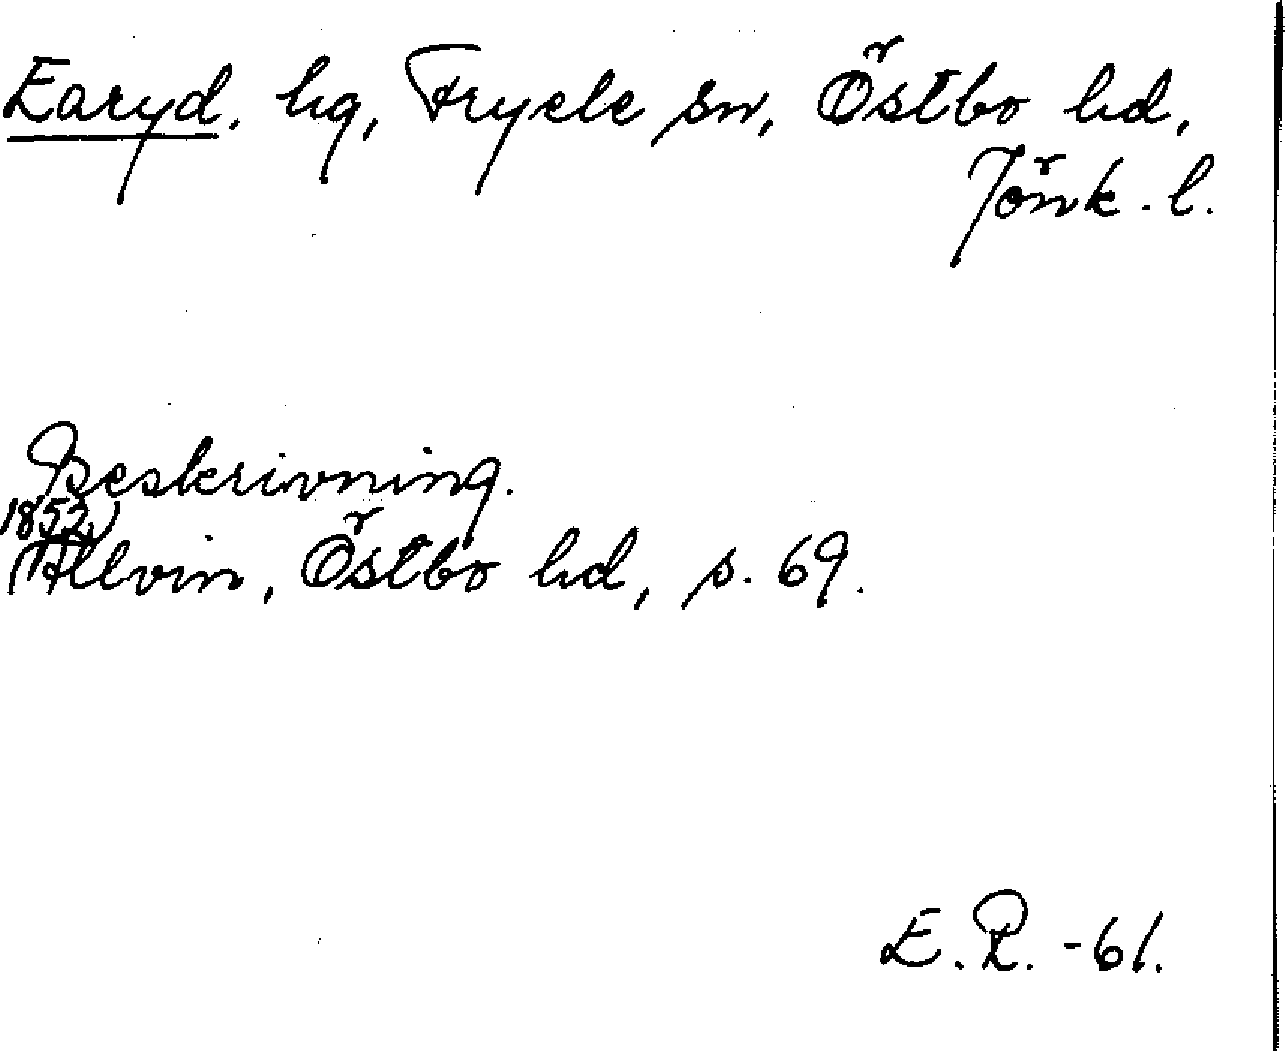 Earyd, hg, Fryele sn, Östbo hd,
Jönk. l.
Beskrivning.
1852,
Allvin, Östbo hd, s. 69.
E. R. -61.